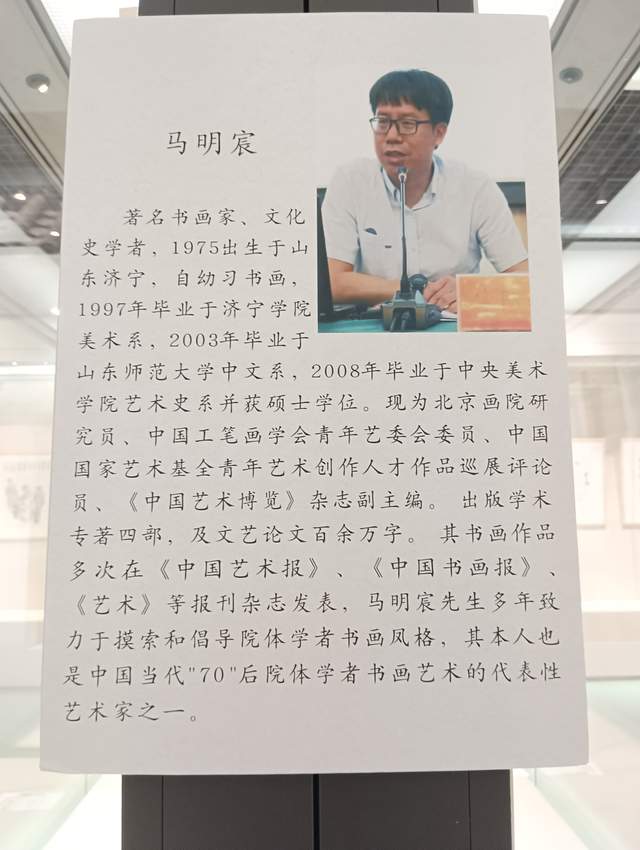 马明宸
著名书画家、文化
史学者，1975出生于山
东济宁，自幼习书画，
1997年毕业于济宁学院
美术系，2003年毕业于
山东师范大学中文系，2008年毕业于中央美术
学院艺术史系并获硕士学位。现为北京画院研
究员、中国工笔画学会青年艺委会委员、中国
国家艺术基金青年艺术创作人才作品巡展评论
员、《中国艺术博览》杂志副主编。 出版学术
专著四部，及文艺论文百余万字。 其书画作品
多次在《中国艺术报》、《中国书画报》、
《艺术》等报刊杂志发表，马明宸先生多年致
力于摸索和倡导院体学者书画风格，其本人也
是中国当代"70"后院体学者书画艺术的代表性
艺术家之一。